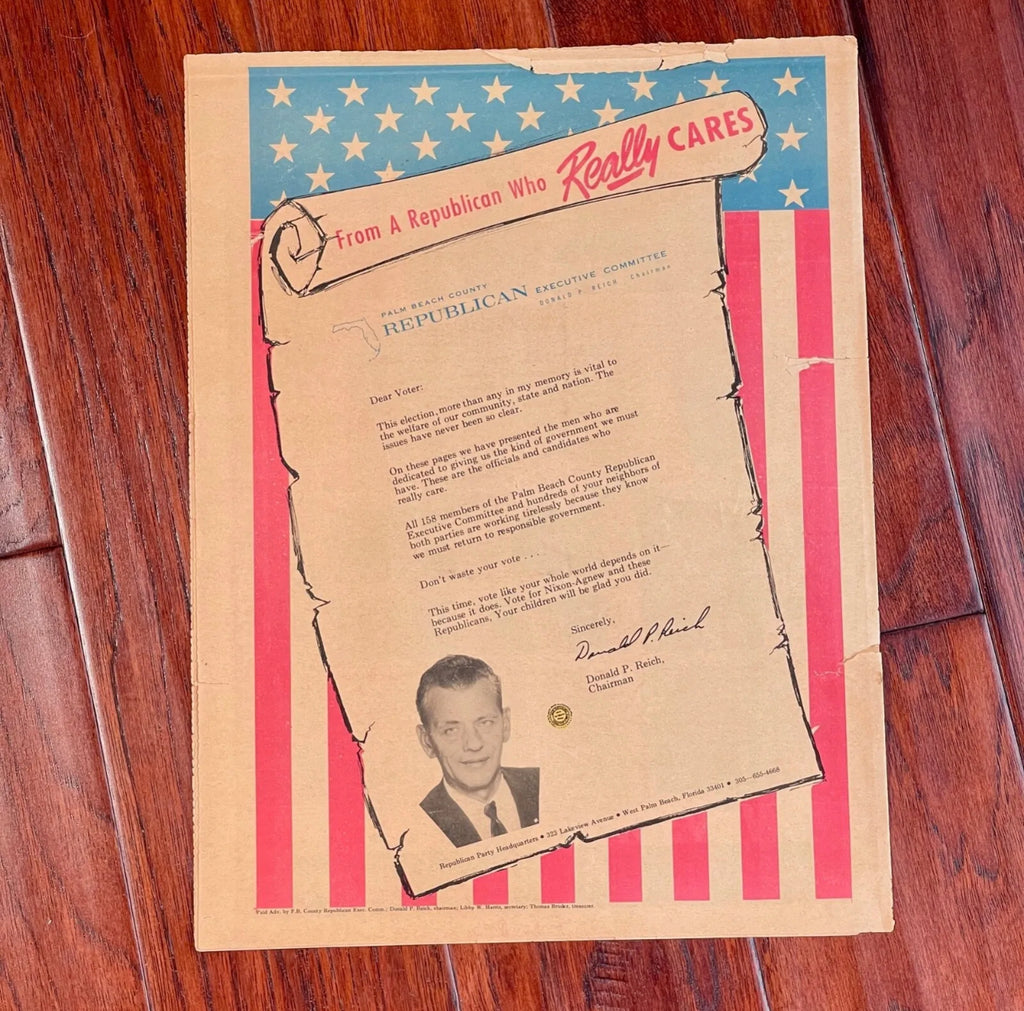 From A Republican Who Really CARES
PALM BEACH COUNTY
REPUBLICAN EXECUTIVE COMMITTEE
DONALD P. REICH Chairman
Dear Voter:
This election, more than any in my memory is vital to
the welfare of our community, state and nation. The
issues have never been so clear.
On these pages we have presented the men who are
dedicated to giving us the kind of government we must
have. These are the officials and candidates who
really care.
All 158 members of the Palm Beach County Republican
Executive Committee and hundreds of your neighbors of
both parties are working tirelessly because they know
we must return to responsible government.
Don't waste your vote . . . .
This time, vote like your whole world depends on it—
because it does. Vote for Nixon-Agnew and these
Republicans, Your children will be glad you did.
Sincerely,
Donald P. Reich
Donald P. Reich,
Chairman
Republican Party Headquarters • 323 Lakeview Avenue • West Palm Beach, Florida 33401 • 305—655-4668
Paid Adv. by P.B. County Republican Exec. Comm.; Donald P. Reich, chairman; Libby W. Harris, secretary; Thomas treasurer.